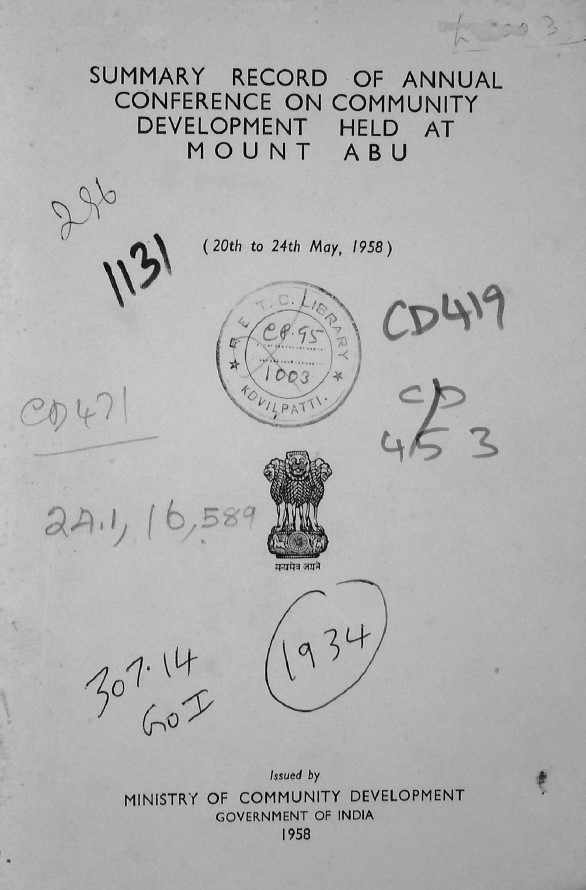 SUMMARY RECORD OF ANNUAL
CONFERENCE ON COMMUNITY
DEVELOPMENT HELD AT
MOUNT ABU
296
1131
(20th to 24th May, 1958)
R. E. T. C. LIBRARY
CP.95
1003
KOVILPATTI.
CD419
CD471
CD
453
2A.1, 16,589
सत्यमेव जयते
307.14
GoI
1934
Issued by
MINISTRY OF COMMUNITY DEVELOPMENT
GOVERNMENT OF INDIA
1958